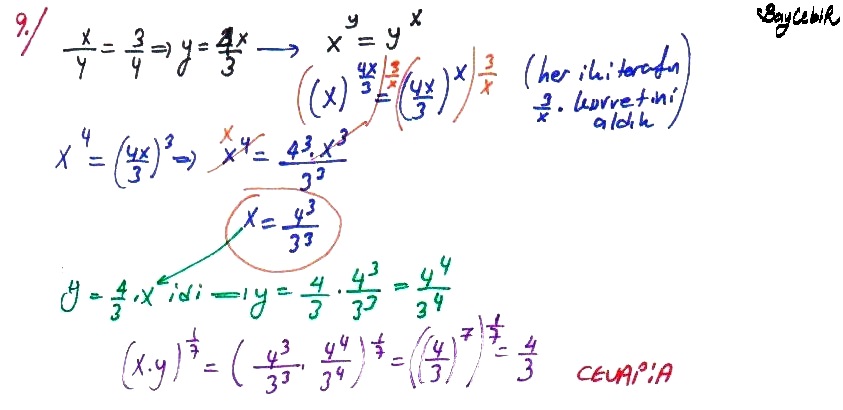 BayCebiR
9./ x/y = 3/4 ⇒ y = 4x/3 → x^y = y^x
((x)^(4x/3))^(3/x) = ((4x/3)^x)^(3/x) (her iki tarafın 3/x. kuvvetini aldık)
x^4 = (4x/3)^3 ⇒ x^4 = 4^3·x^3/3^3
x
x = 4^3/3^3
y = 4/3·x idi → y = 4/3 · 4^3/3^3 = 4^4/3^4
(x·y)^(1/7) = (4^3/3^3 · 4^4/3^4)^(1/7) = ((4/3)^7)^(1/7) = 4/3 CEVAP:A